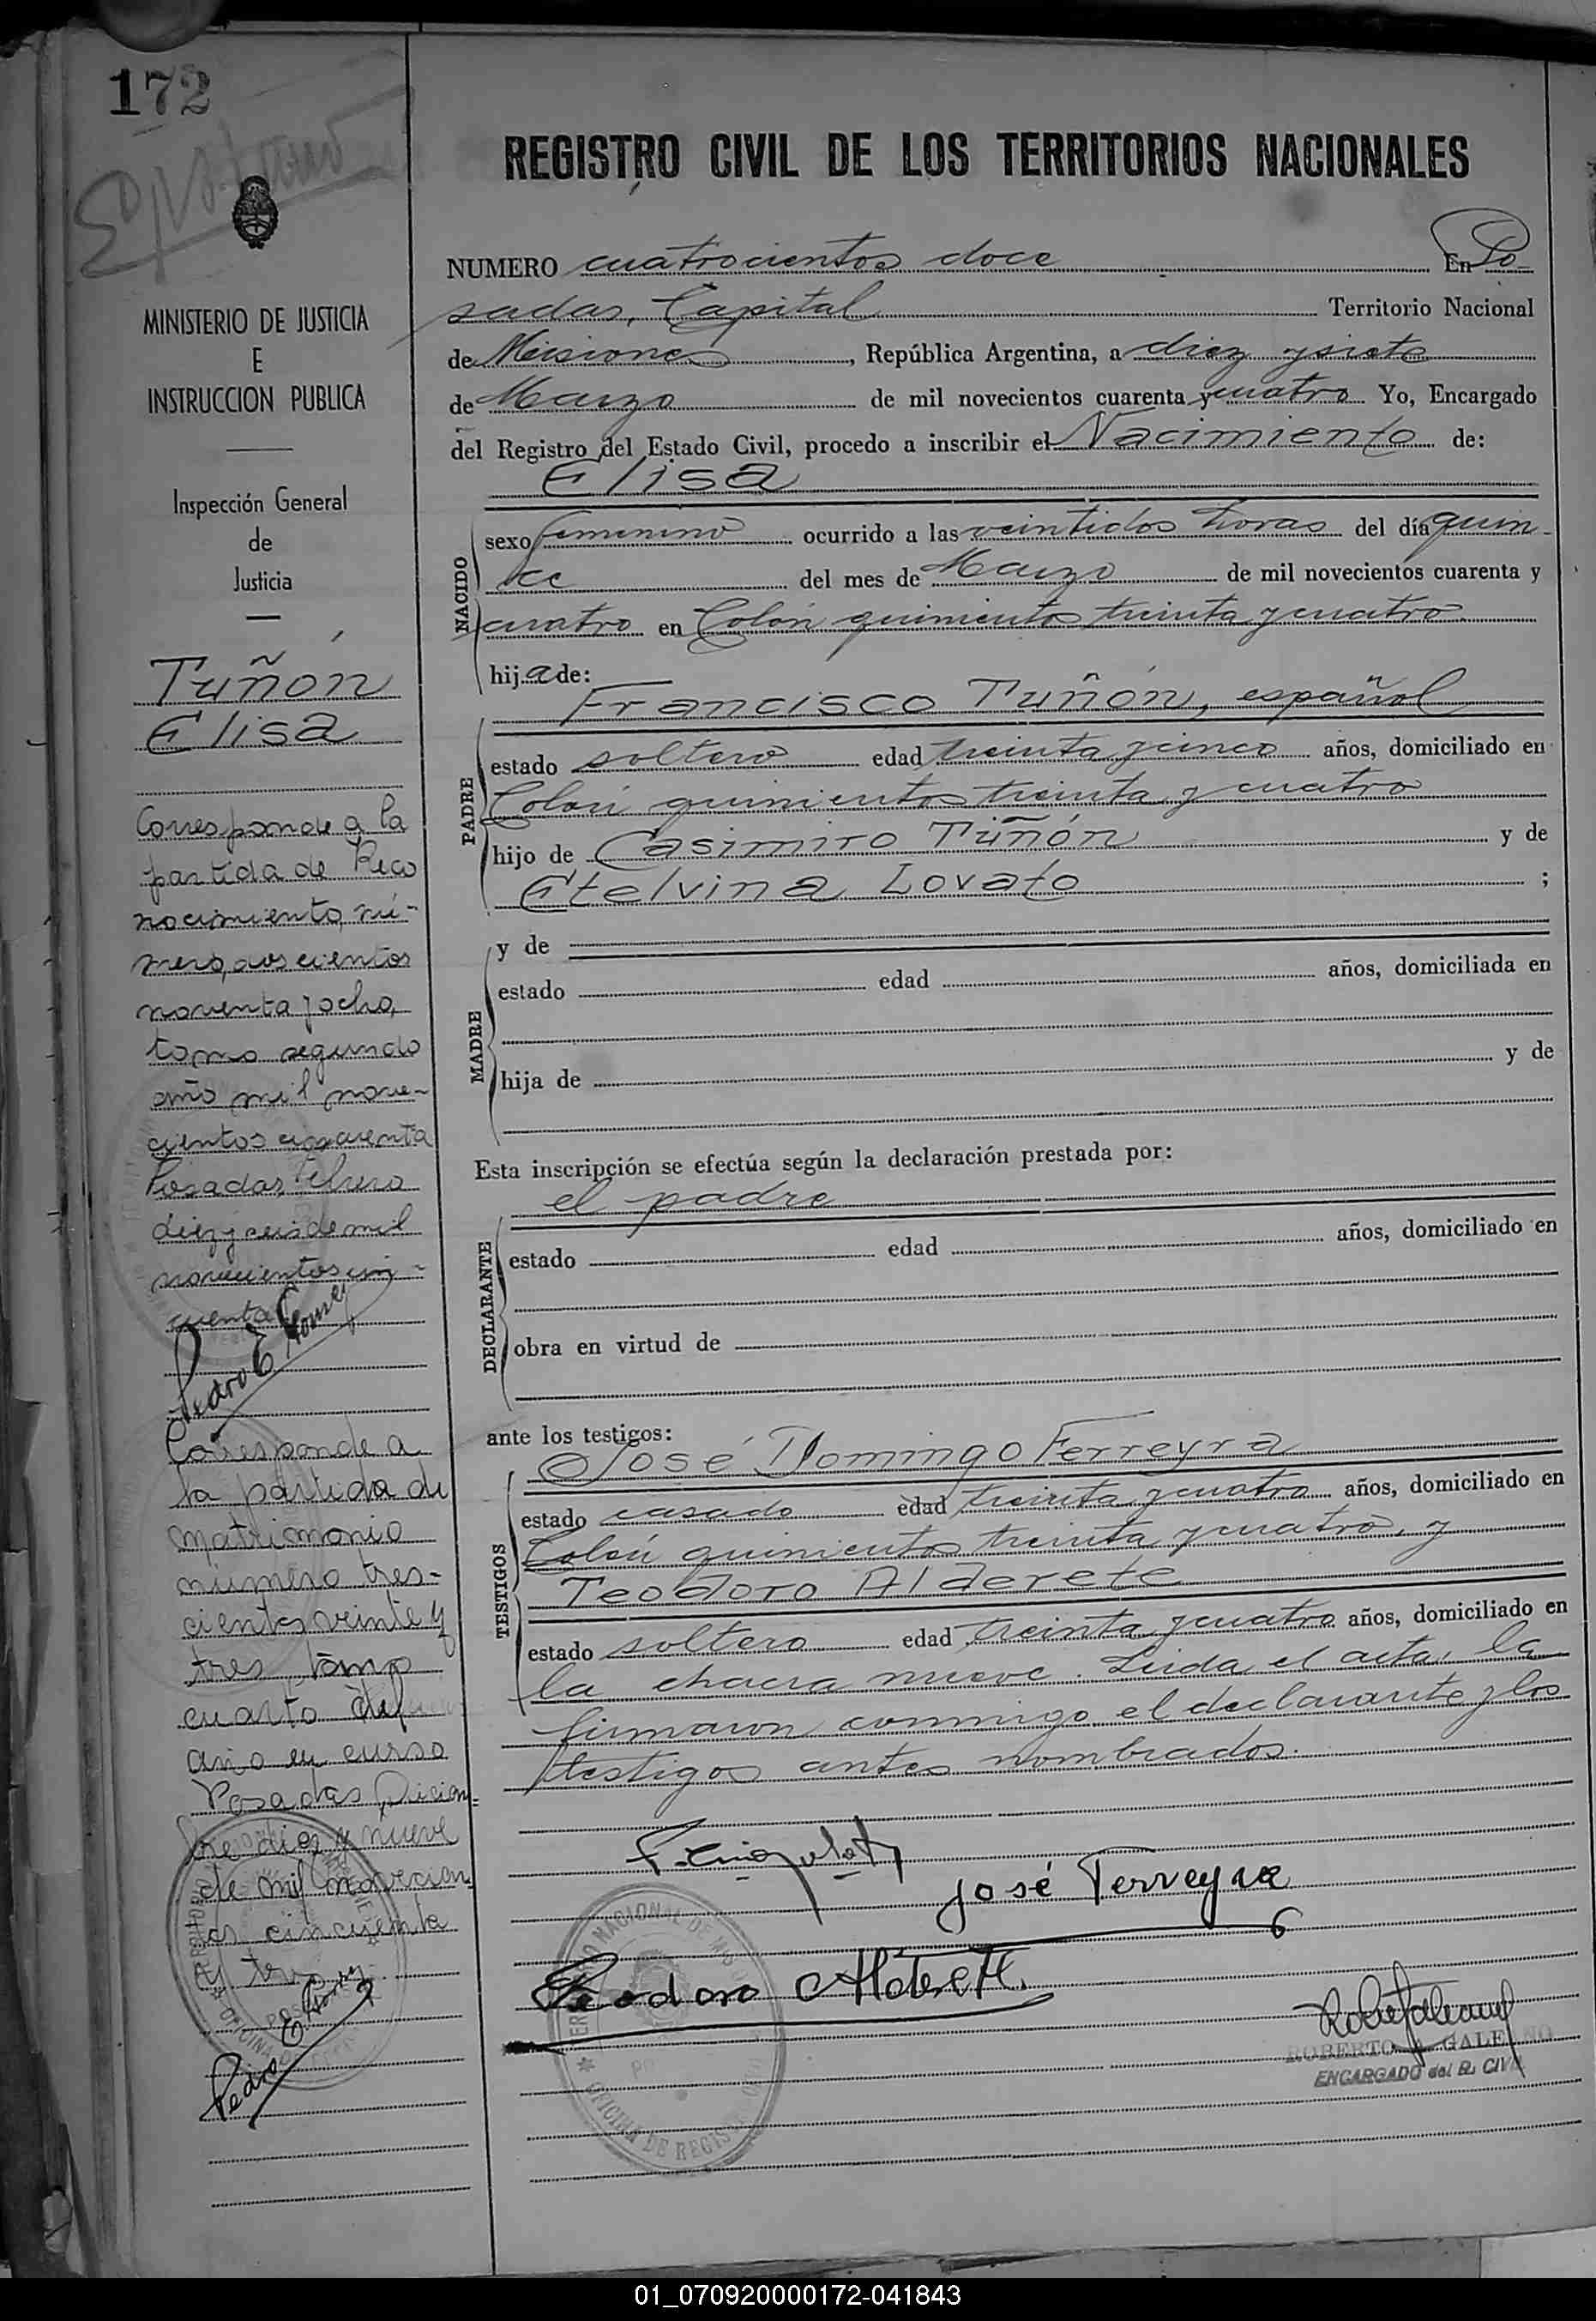 172
MINISTERIO DE JUSTICIA
E
INSTRUCCION PUBLICA
Inspección General
de
Justicia
Tuñón
Elisa
Corresponde a la
partida de Reco
nocimiento, nú-
mero, doscientos
noventa y ocho,
tomo segundo
año mil nove-
cientos cincuenta
Posadas, Febrero
diez y seis de mil
novecientos cin-
cuenta
Pedro E Gomez
Corresponde a
la partida de
matrimonio
número tres-
cientos veinte y
tres tomo
cuarto del
año en curso
Posadas, Diciem-
bre diez y nueve
de mil novecien
tos cincuenta
y tres
Pedro E Gomez
REGISTRO CIVIL DE LOS TERRITORIOS NACIONALES
NUMERO cuatrocientos doce En Po-
sadas, Capital Territorio Nacional
de Misiones, República Argentina, a diez y siete
de Marzo de mil novecientos cuarenta y cuatro Yo, Encargado
del Registro del Estado Civil, procedo a inscribir el Nacimiento de:
Elisa
NACIDO
sexo femenino ocurrido a las veintidos horas del día quin-
ce del mes de Marzo de mil novecientos cuarenta y
cuatro en Colón quinientos treinta y cuatro.
hija de:
Francisco Tuñón, español
PADRE
estado soltero edad treinta y cinco años, domiciliado en
Colón quinientos treinta y cuatro
hijo de Casimiro Tuñón y de
Etelvina Lovato ;
MADRE
y de
estado edad años, domiciliada en
hija de y de
Esta inscripción se efectúa según la declaración prestada por:
el padre
DECLARANTE
estado edad años, domiciliado en
obra en virtud de
ante los testigos:
José Domingo Ferreyra
TESTIGOS
estado casado edad treinta y cuatro años, domiciliado en
Colón quinientos treinta y cuatro, y
Teodoro Alderete
estado soltero edad treinta y cuatro años, domiciliado en
la chacra nueve. Leida el acta, la
firmaron conmigo el declarante y los
testigos antes nombrados.
José Ferreyra
Teodoro Alderete
ROBERTO A. GALEANO
ENCARGADO del R. CIVIL
OFICINA DE REGISTRO
01_070920000172-041843